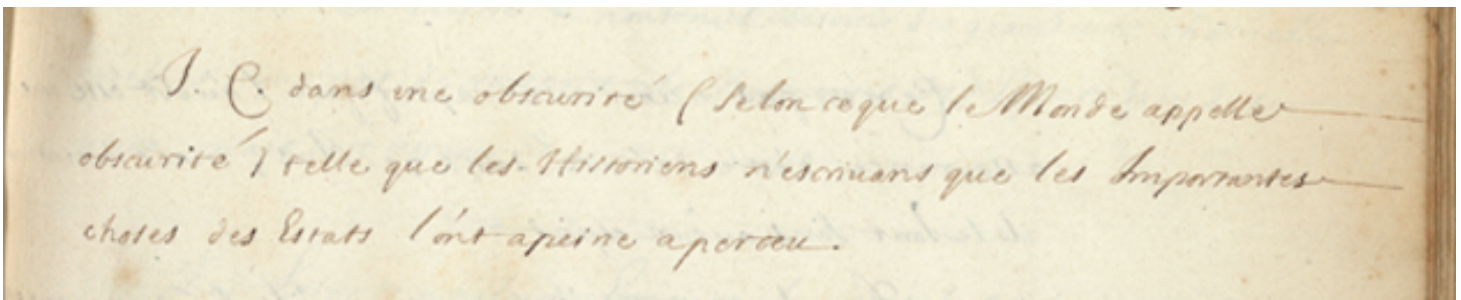 J. C. dans une obscurité (selon ce que le Monde appelle
obscurité) telle que les Historiens n'escrivans que les Importantes
choses des Estats l'ont apeine aperceu.